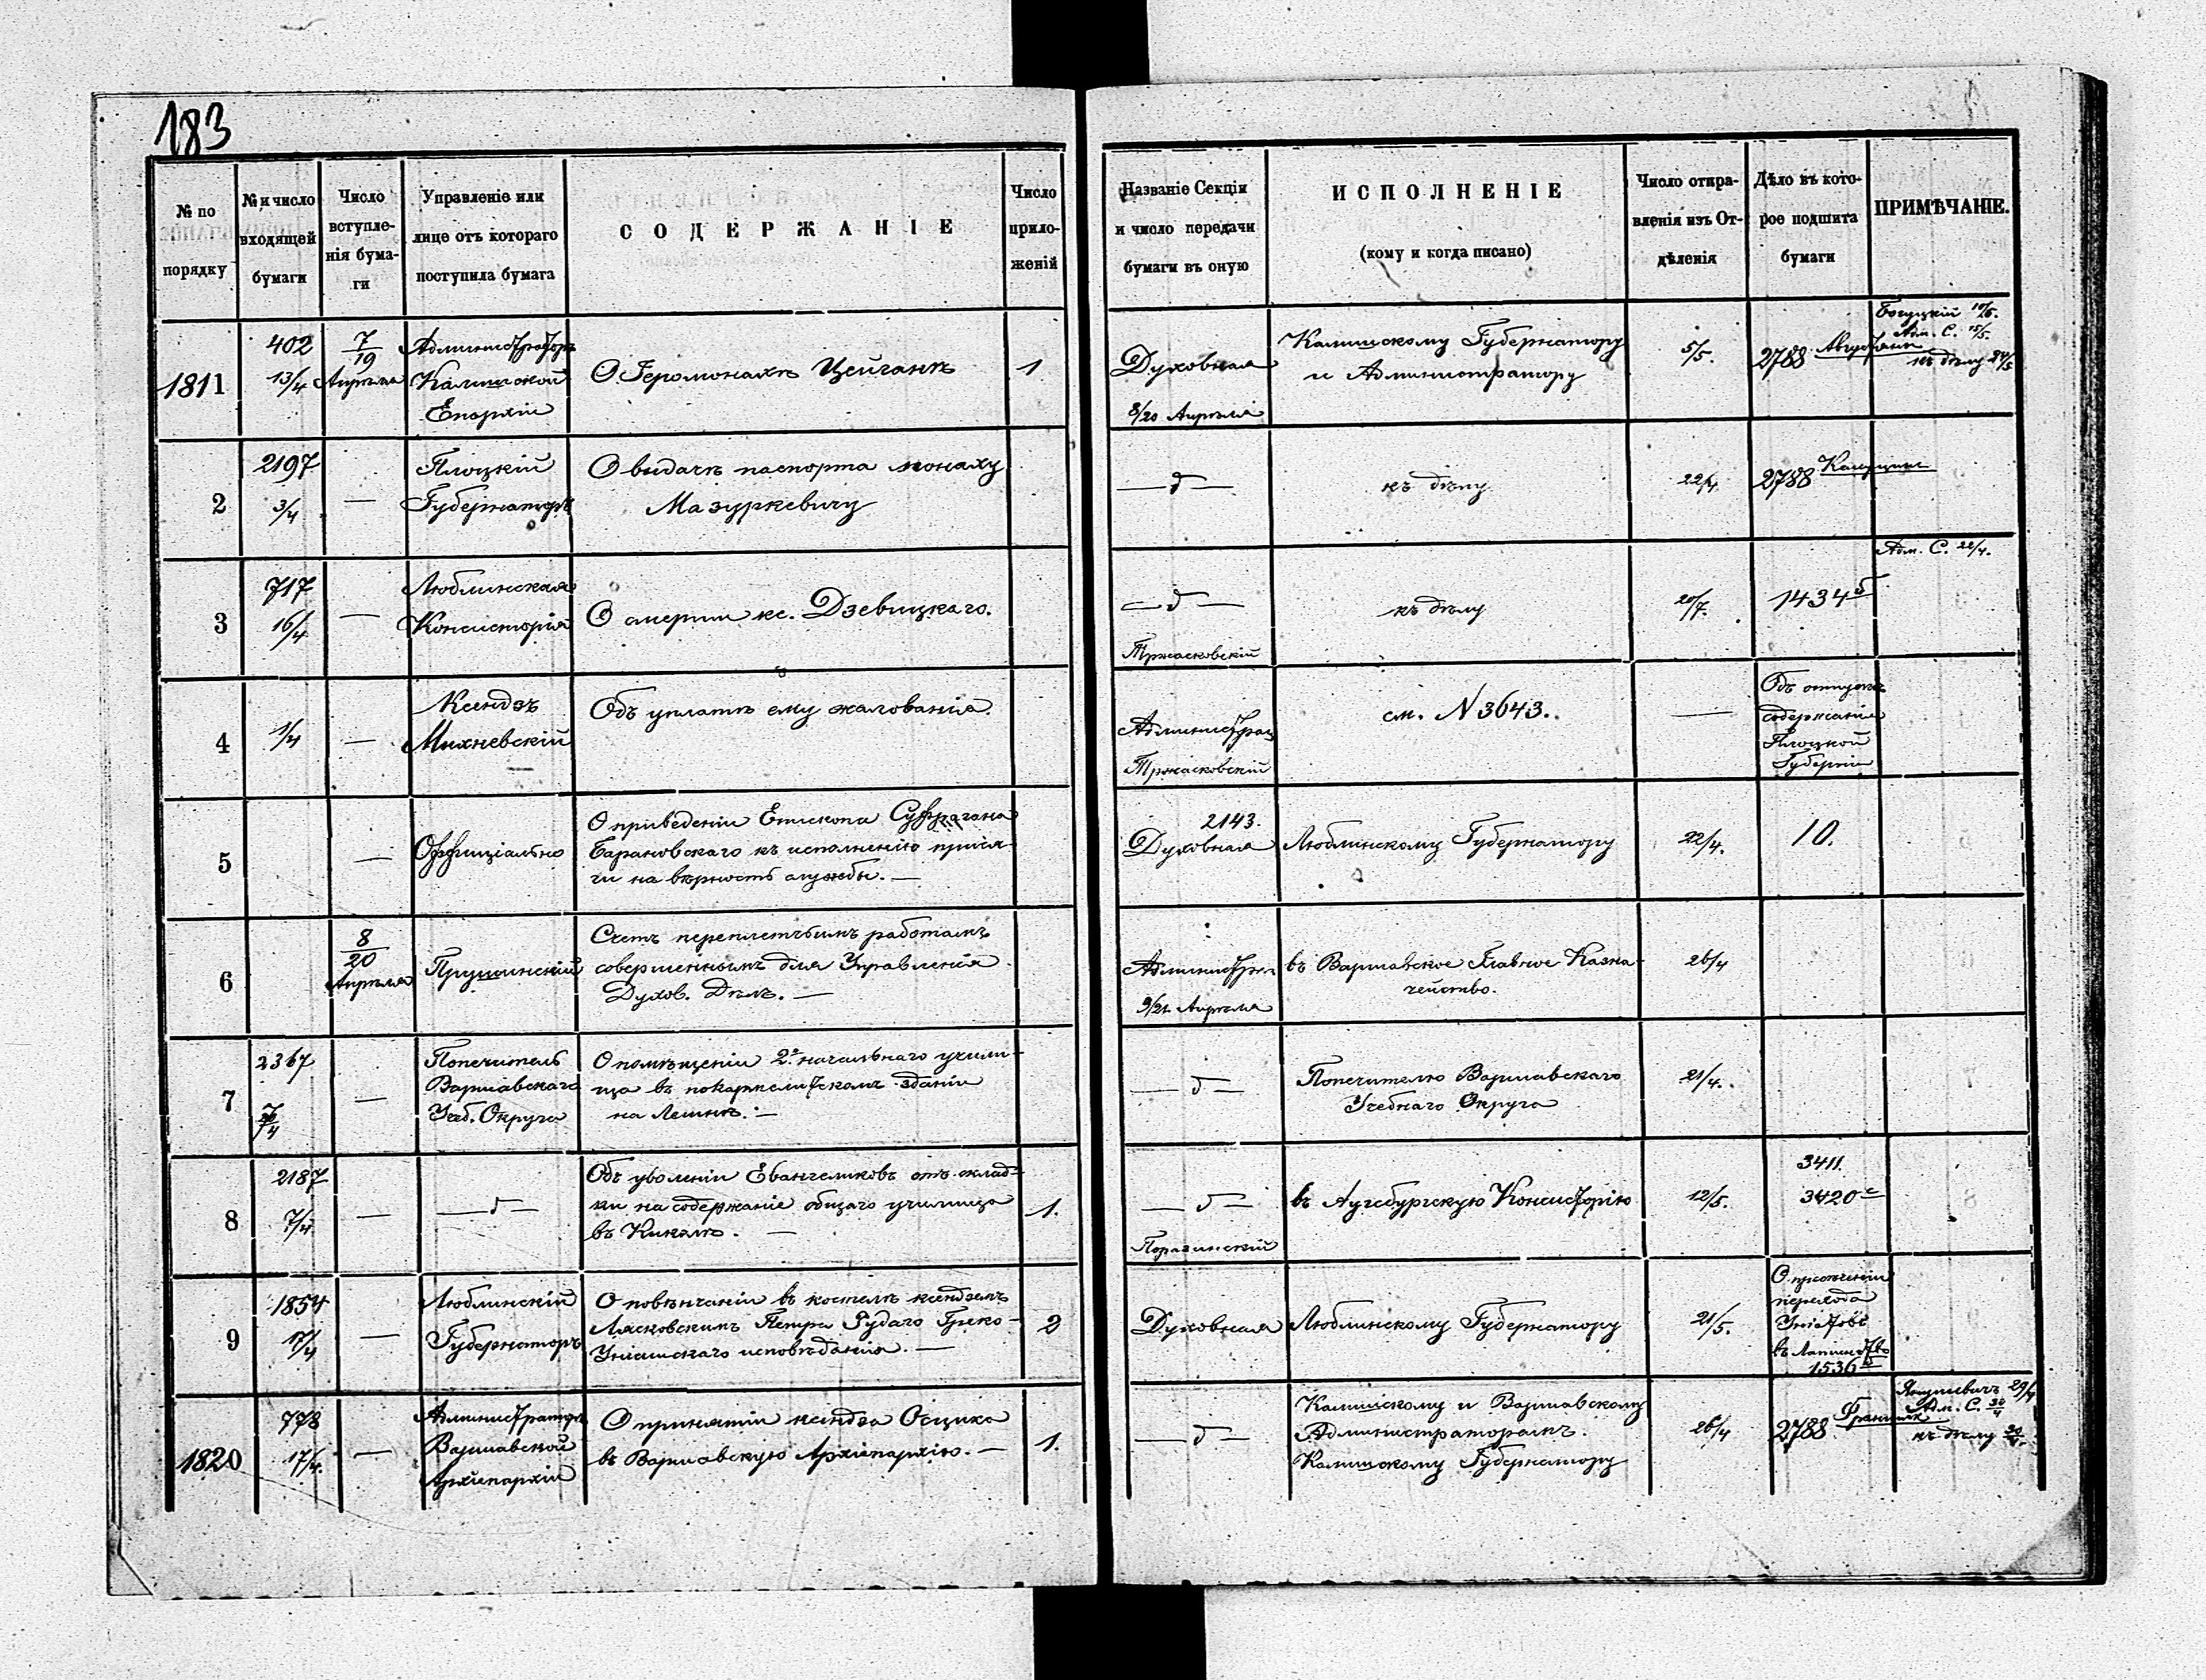 183
№ по порядку
№ и число входящей бумаги
Число вступле-нія бума-ги
Управленіе или лице отъ котораго поступила бумага
СОДЕРЖАНІЕ
Число прило-женій
Названіе Секціи и число передачи бумаги въ оную
ИСПОЛНЕНІЕ
(кому и когда писано)
Число отпра-вленія изъ От-дѣленія
Дѣло въ кото-рое подшита бумаги
ПРИМѢЧАНІЕ.
1811
402
13/4
7/19
Апрѣля
Администраторъ
Калишской
Епархіи
О Іеромонахѣ Цейганѣ
1
Духовная
8/20 Апрѣля
Калишскому Губернатору
и Администратору
5/5.
2788
Адм. С. 15/5.
къ дѣлу
2
2197
3/4
—
Плоцкій
Губернаторъ
О выдачѣ паспорта монаху
Мазуркевичу
— д —
къ дѣлу
22/4.
2788
3
717
16/4
—
Люблинская
Консисторія
О смерти кс. Дзевицкаго.
— д —
Тржасковскій
къ дѣлу
20/7.
1434 б
Адм. С. 22/4.
4
1/4
—
Ксендзъ
Михневскій
Объ уплатѣ ему жалованія.
Администрац
Тржасковскій
см. N 3643.
—
Объ отпускѣ
содержанія
Плоцкой
Губерніи
5
—
Оффиціально
О приведеніи Епископа Суффрагана
Барановскаго къ исполненію прися-
ги на вѣрность службы. —
2143.
Духовная
Люблинскому Губернатору
22/4.
10.
6
8/20
Апрѣля
Прушинскій
Счетъ переплетнымъ работамъ
совершеннымъ для Управленія
Духов. Дѣлъ. —
9/21 Апрѣля
въ Варшавское Главное Казна-
чейство.
26/4
7
2367
—
Попечитель
Варшавскаго
Учеб. Округа
О помѣщеніи 2го начальнаго учили-
ща въ покармелитскомъ зданіи
на Лешнѣ. —
— д —
Попечителю Варшавскаго
Учебнаго Округа
21/4.
8
2187
7/4.
—
— д —
Объ уволеніи Евангеликовъ отъ склад-
ки на содержаніе общаго училища
въ Киколѣ. —
1.
— д —
въ Аугсбургскую Консисторію
12/5.
3411.
3420 с
9
1854
17/4
—
Люблинскій
Губернаторъ
О повѣнчаніи въ костелѣ ксендзомъ
Лясковскимъ Петра Рудаго Греко-
Уніатскаго исповѣданія. —
2
Духовная
Люблинскому Губернатору
21/5.
О пресѣченіи
перехода
Уніатовъ
въ Латинство
1536
1820
778
17/4.
—
Администраторъ
Варшавской
Архіепархіи
О принятіи ксендза Осцика
въ Варшавскую Архіепархію. —
1.
— д —
Калишскому и Варшавскому
Администраторамъ.
Калишскому Губернатору
26/4
2788
Адм. С. 30/4
къ дѣлу